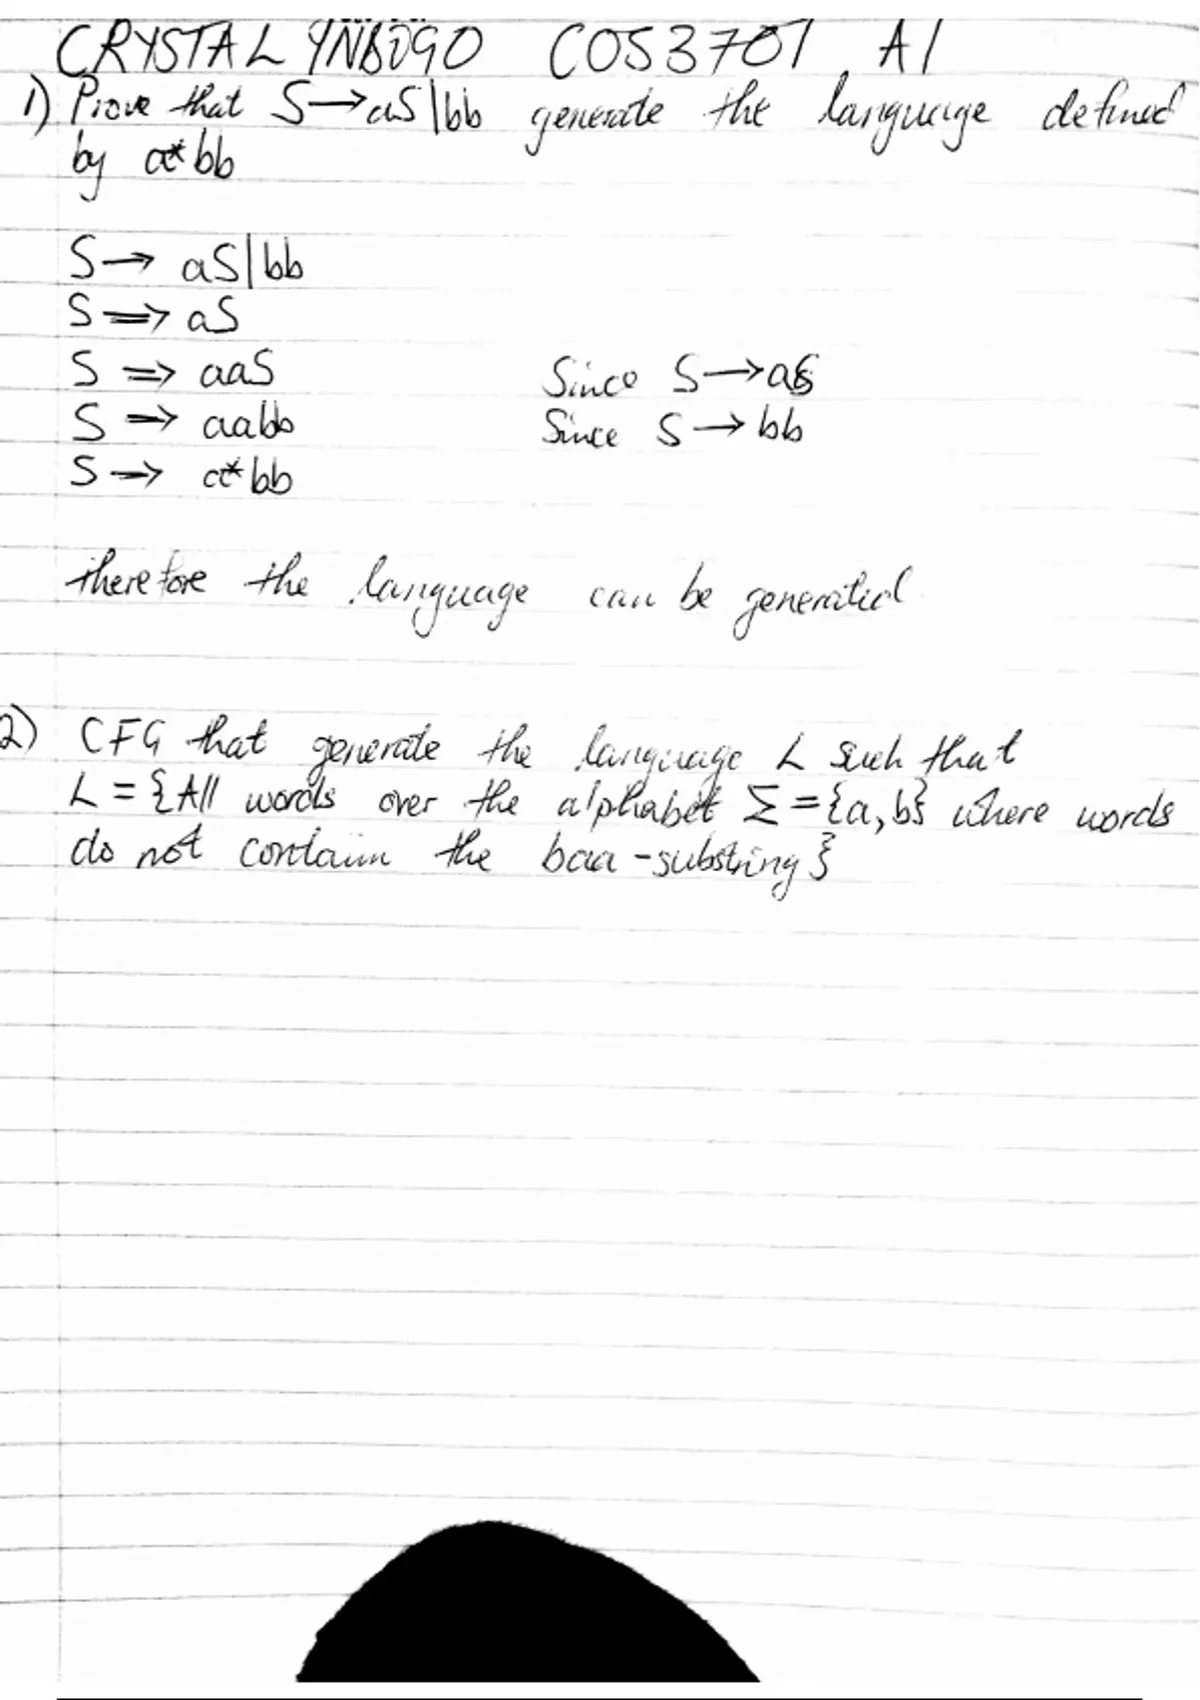 CRYSTAL YNBOGO COS3701 A1
1) Prove that S→aS|bb generate the language defined
by a*bb
S→ aS|bb
S⇒ aS
S ⇒ aaS Since S→aS
S ⇒ aabb Since S→bb
S ⇒ a*bb
therefore the language can be generated
2) CFG that generate the language L such that
L = {All words over the alphabet Σ = {a,b} where words
do not contain the baa-substring}